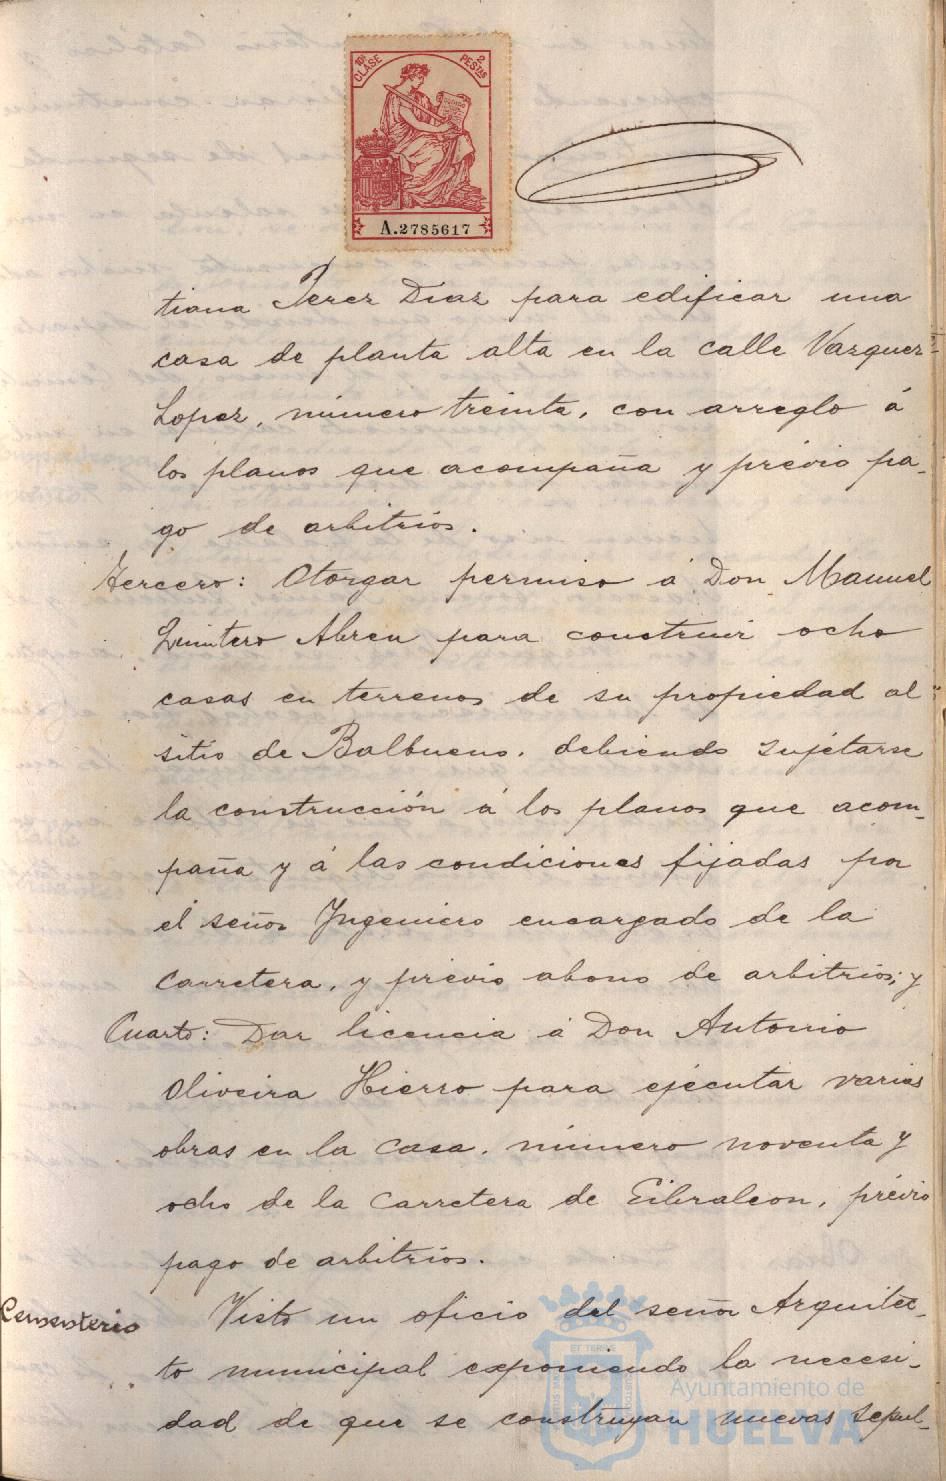 10ª CLASE
2 PESTAS
A.2785617
tiana Perez Diaz para edificar una
casa de planta alta en la calle Vazquez
Lopez, número treinta, con arreglo á
los planos que acompaña y prévio pa-
go de arbitrios.
Tercero: Otorgar permiso á Don Manuel
Quintero Abreu para construir ocho
casas en terrenos de su propiedad al
sitio de Balbueno, debiendo sujetarse
la construcción á los planos que acom-
paña y á las condiciones fijadas por
el señor Ingeniero encargado de la
Carretera, y prévio abono de arbitrios; y
Cuarto: Dar licencia á Don Antonio
Oliveira Hierro para ejecutar varias
obras en la casa, número noventa y
ocho de la Carretera de Gibraleon, prévio
pago de arbitrios.
Cementerio
Visto un oficio del señor Arquitec-
to municipal exponiendo la necesi-
dad de que se construyan nuevas sepul-
Ayuntamiento de
HUELVA